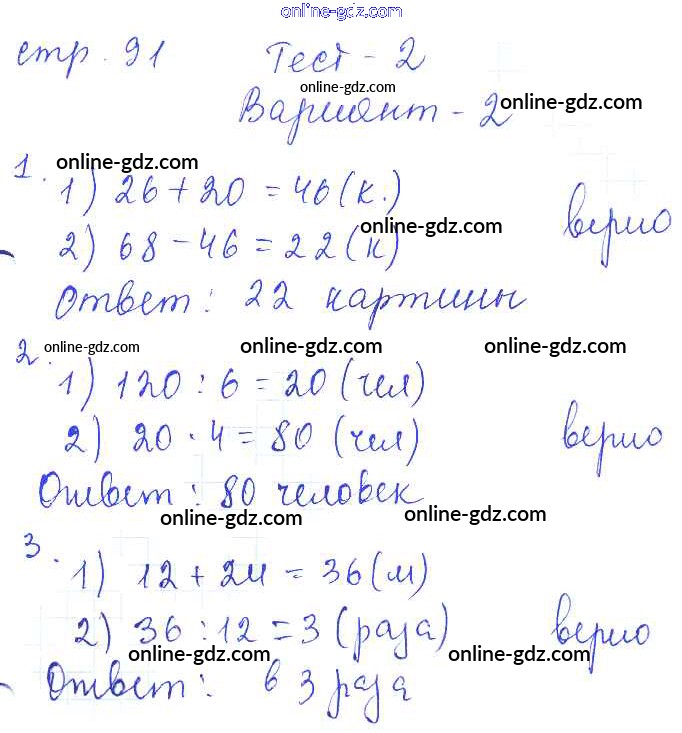 online-gdz.com
стр. 91 Тест - 2
online-gdz.com
Вариант - 2 online-gdz.com
online-gdz.com
1. 1) 26 + 20 = 46 (к.)
верно
online-gdz.com
2) 68 - 46 = 22 (к)
Ответ: 22 картины
2. online-gdz.com online-gdz.com online-gdz.com
1) 120 : 6 = 20 (чел)
2) 20 · 4 = 80 (чел) верно
Ответ: 80 человек
online-gdz.com online-gdz.com
3. 1) 12 + 24 = 36 (м)
2) 36 : 12 = 3 (раза) верно
online-gdz.com online-gdz.com
Ответ: в 3 раза